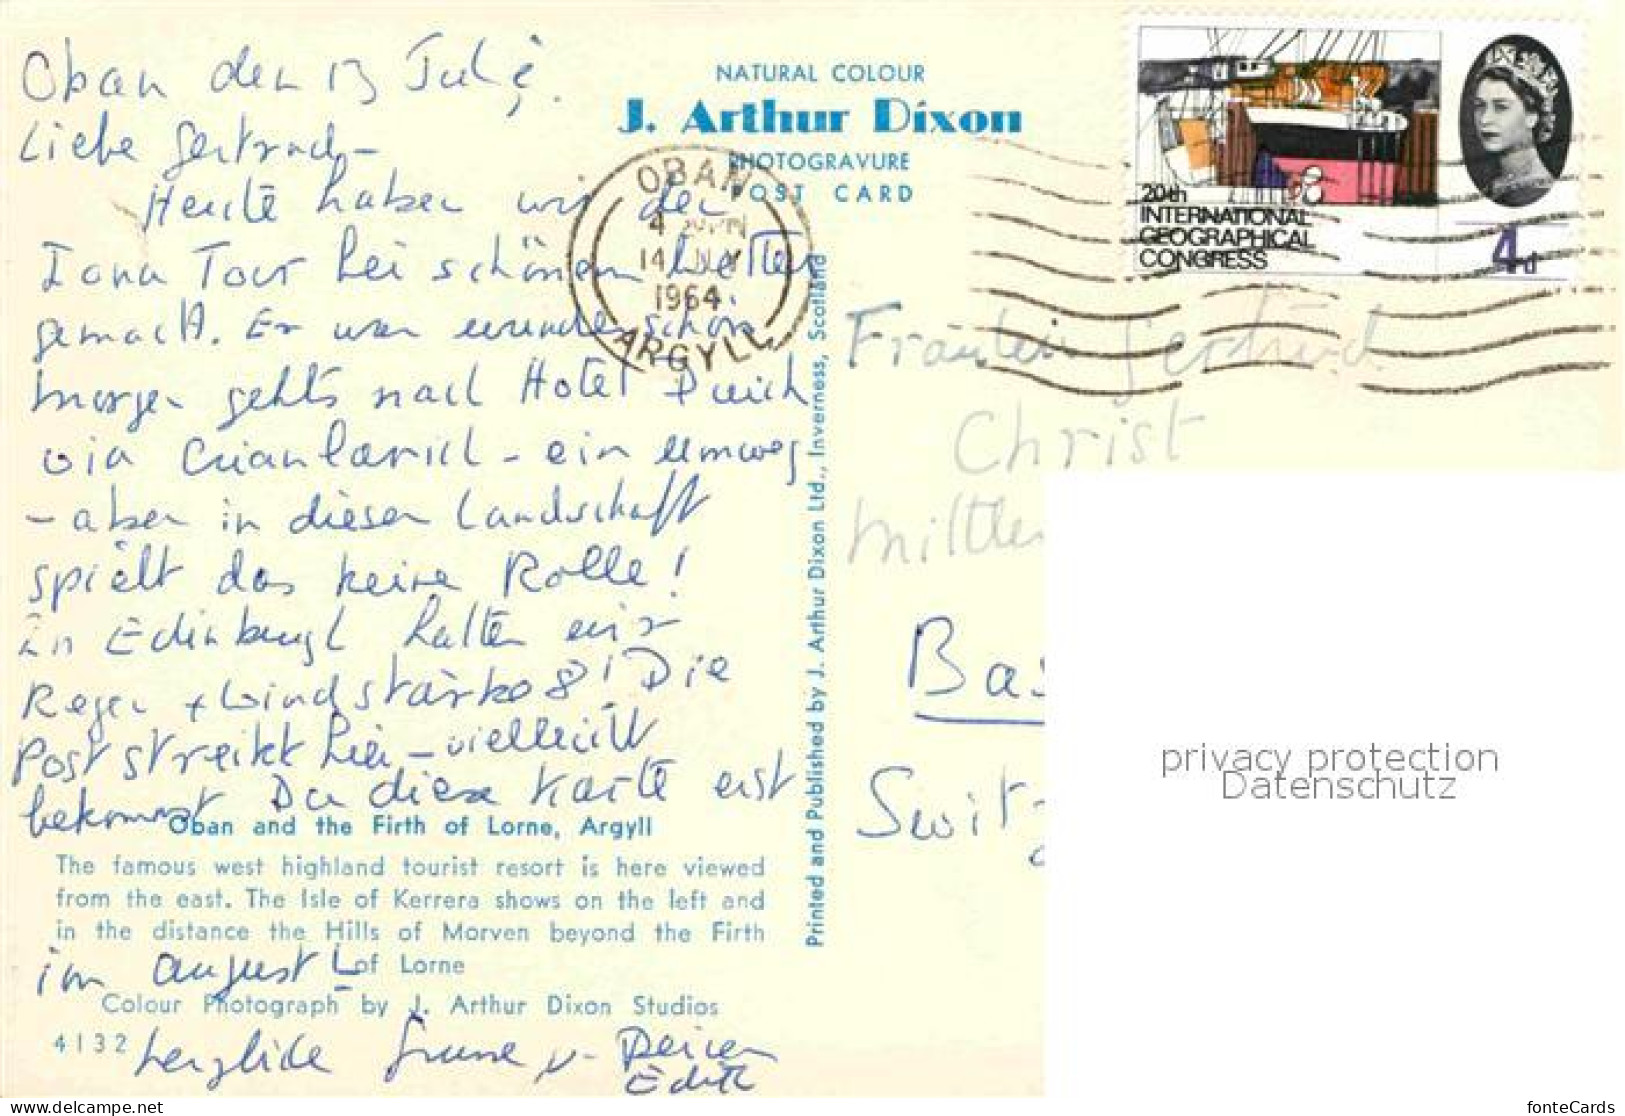 Oban den 13 Juli
Liebe Gertrud -
Heute haben wir die
Iona Tour bei schönem Wetter
gemacht. Es war wunderschön
morgen gehts nach Hotel Duich
via Crianlarich - ein Umweg
- aber in dieser Landschaft
spielt das keine Rolle!
In Edinburgh hatten wir
Regen + Windstärke 8! Die
Post streikt hier - vielleicht
bekommst Du diese Karte erst
im August!
herzliche Grüsse v. Deiner
Edith
Oban and the Firth of Lorne, Argyll
The famous west highland tourist resort is here viewed
from the east. The Isle of Kerrera shows on the left and
in the distance the Hills of Morven beyond the Firth
of Lorne
Colour Photograph by J. Arthur Dixon Studios
4132
NATURAL COLOUR
J. Arthur Dixon
PHOTOGRAVURE
POST CARD
OBAN
4 PM
14 JLY
1964
ARGYLL
Printed and Published by J. Arthur Dixon Ltd., Inverness, Scotland
20th
INTERNATIONAL
GEOGRAPHICAL
CONGRESS
4d
Fräulein Gertrud
Christ
Mittle
Bas
Switz
privacy protection
Datenschutz
fonteCards